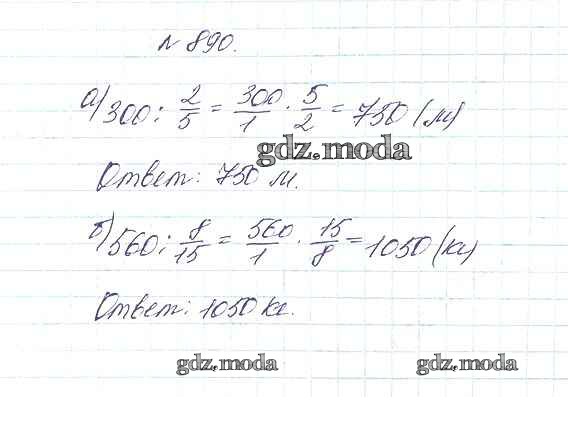 № 890.
а) 300 : 2/5 = 300/1 · 5/2 = 750 (м)
gdz.moda
Ответ: 750 м.
б) 560 : 8/15 = 560/1 · 15/8 = 1050 (кг)
Ответ: 1050 кг.
gdz.moda gdz.moda